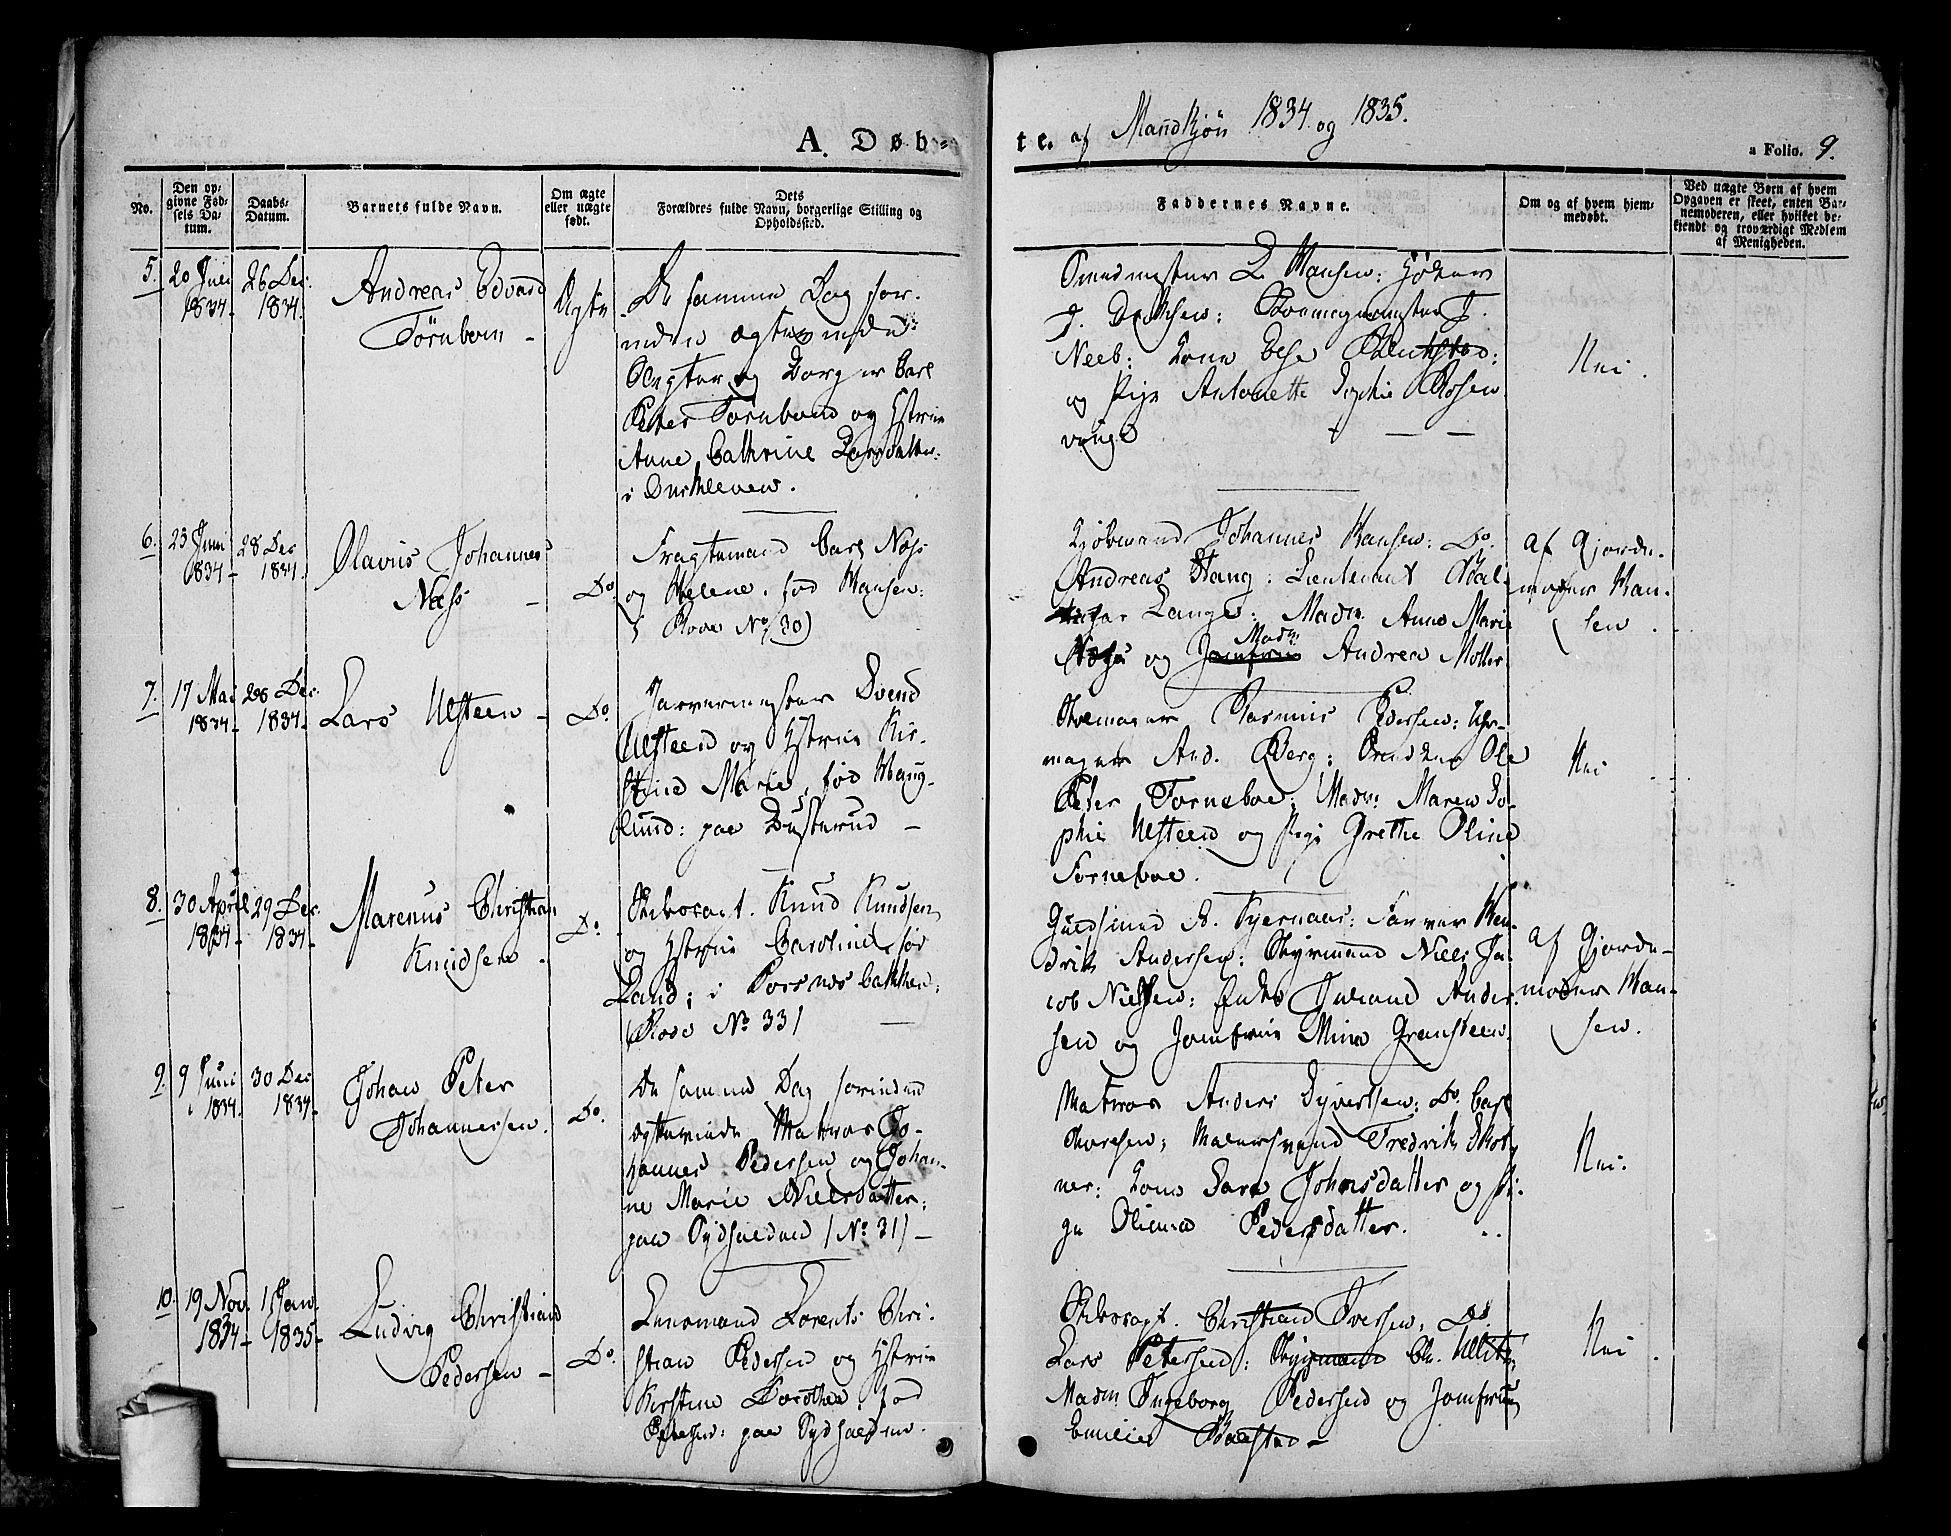 A. Døb-
te. af Mandkjøn 1834 og 1835.
a Folio. 9.
No.
Den op-
givne Fød-
sels Da-
tum.
Daabs-
Datum.
Barnets fulde Navn.
Om ægte
eller uægte
født.
Dets
Forældres fulde Navn, borgerlige Stilling og
Opholdssted.
Faddernes Navne.
Om og af hvem hjem-
medøbt.
Ved uægte Børn af hvem
Opgaven er skeet, enten Bar-
nemoderen, eller hvilket be-
kjendt og troværdigt Medlem
af Menigheden.
5.
20 Juni
1834-
26 Dec.
1834.
Andreas Edvard
Törnbom -
Ægte
De samme Dag for-
enede Ægtemænd
og Borger Carl
Peter Törnbom og Hstrue
Anne Cathrine Larsdatter:
i
L. Hansen:
J.
Neeb: Kone
og Pige Antonette Sophie Rosen
vinge
Nei.
6.
23 Juni
1834-
28 Dec
1834.
Olavus Johannes
Næss -
Do.
Fragtemand Carl Næss
og Helene, fød Hansen:
(Rove No. 30)
Kjöbmand Johannes Hansen: Do.
Andreas Stang: Lieutenant
Lange: Madm. Anne Marie
Næss og Jomfrue Madm Andrea Møller
af Gjorde-
moder Han-
sen
7.
17 Mai
1834-
28 Dec.
1834-
Lars Ulsteen -
Do.
Farvermester Svend
Ulsteen og Hstrue Kir-
stine Marie, fød Haug-
lund: paa Busterud -
Skomager Rasmus Pedersen: Uhr-
mager And. Berg: Ole
Peter Torneboe: Madm: Maren So-
phie Ulsteen og Pige Grethe Oline
Torneboe.
Nei
8.
30 April
1834-
29 Dec.
1834-
Marenus Christian
Knudsen -
Do.
Skibscapt. Knud Knudsen
og Hstrue Caroline, fød
Lund: i Porsnesbakken:
(Rove No. 33)
Guldsmed Kjernaas: Farver Hen-
drik Andersen: Styrmand Niels Ja-
cob Nielsen: Enke Juliane Ander-
sen og Jomfrue Mina Grønsteen.
af Gjorde-
moder Han-
sen.
9.
9 Juni
1834.
30 Dec
1834-
Johan Peter
Johannessen.
Do.
De samme Dag forenede
Ægtemænd Matros Jo-
hannes Pedersen og Johan-
ne Marie Nielsdatter:
paa Sydsalden (No. 31) -
Matros Anders Syvertsen: Do. Carl
Thoresen: Malersvend Fredrik
ner: Kone Sara Johnsdatter og Pi-
ge Olina Pedersdatter.
Nei.
10.
19 Nov.
1834-
1 Jan.
1835-
Ludvig Christian
Pedersen -
Do.
Lensmand Lorents Chri-
stian Pedersen og Hstrue
Kirstine Dorothea, fød
Petersen: paa Sydsalden.
Skibscapt. Christian Iversen: Do.
Lars Petersen: Styrmand
Madm Ingeborg Pedersen og Jomfrue
Emilie
Nei